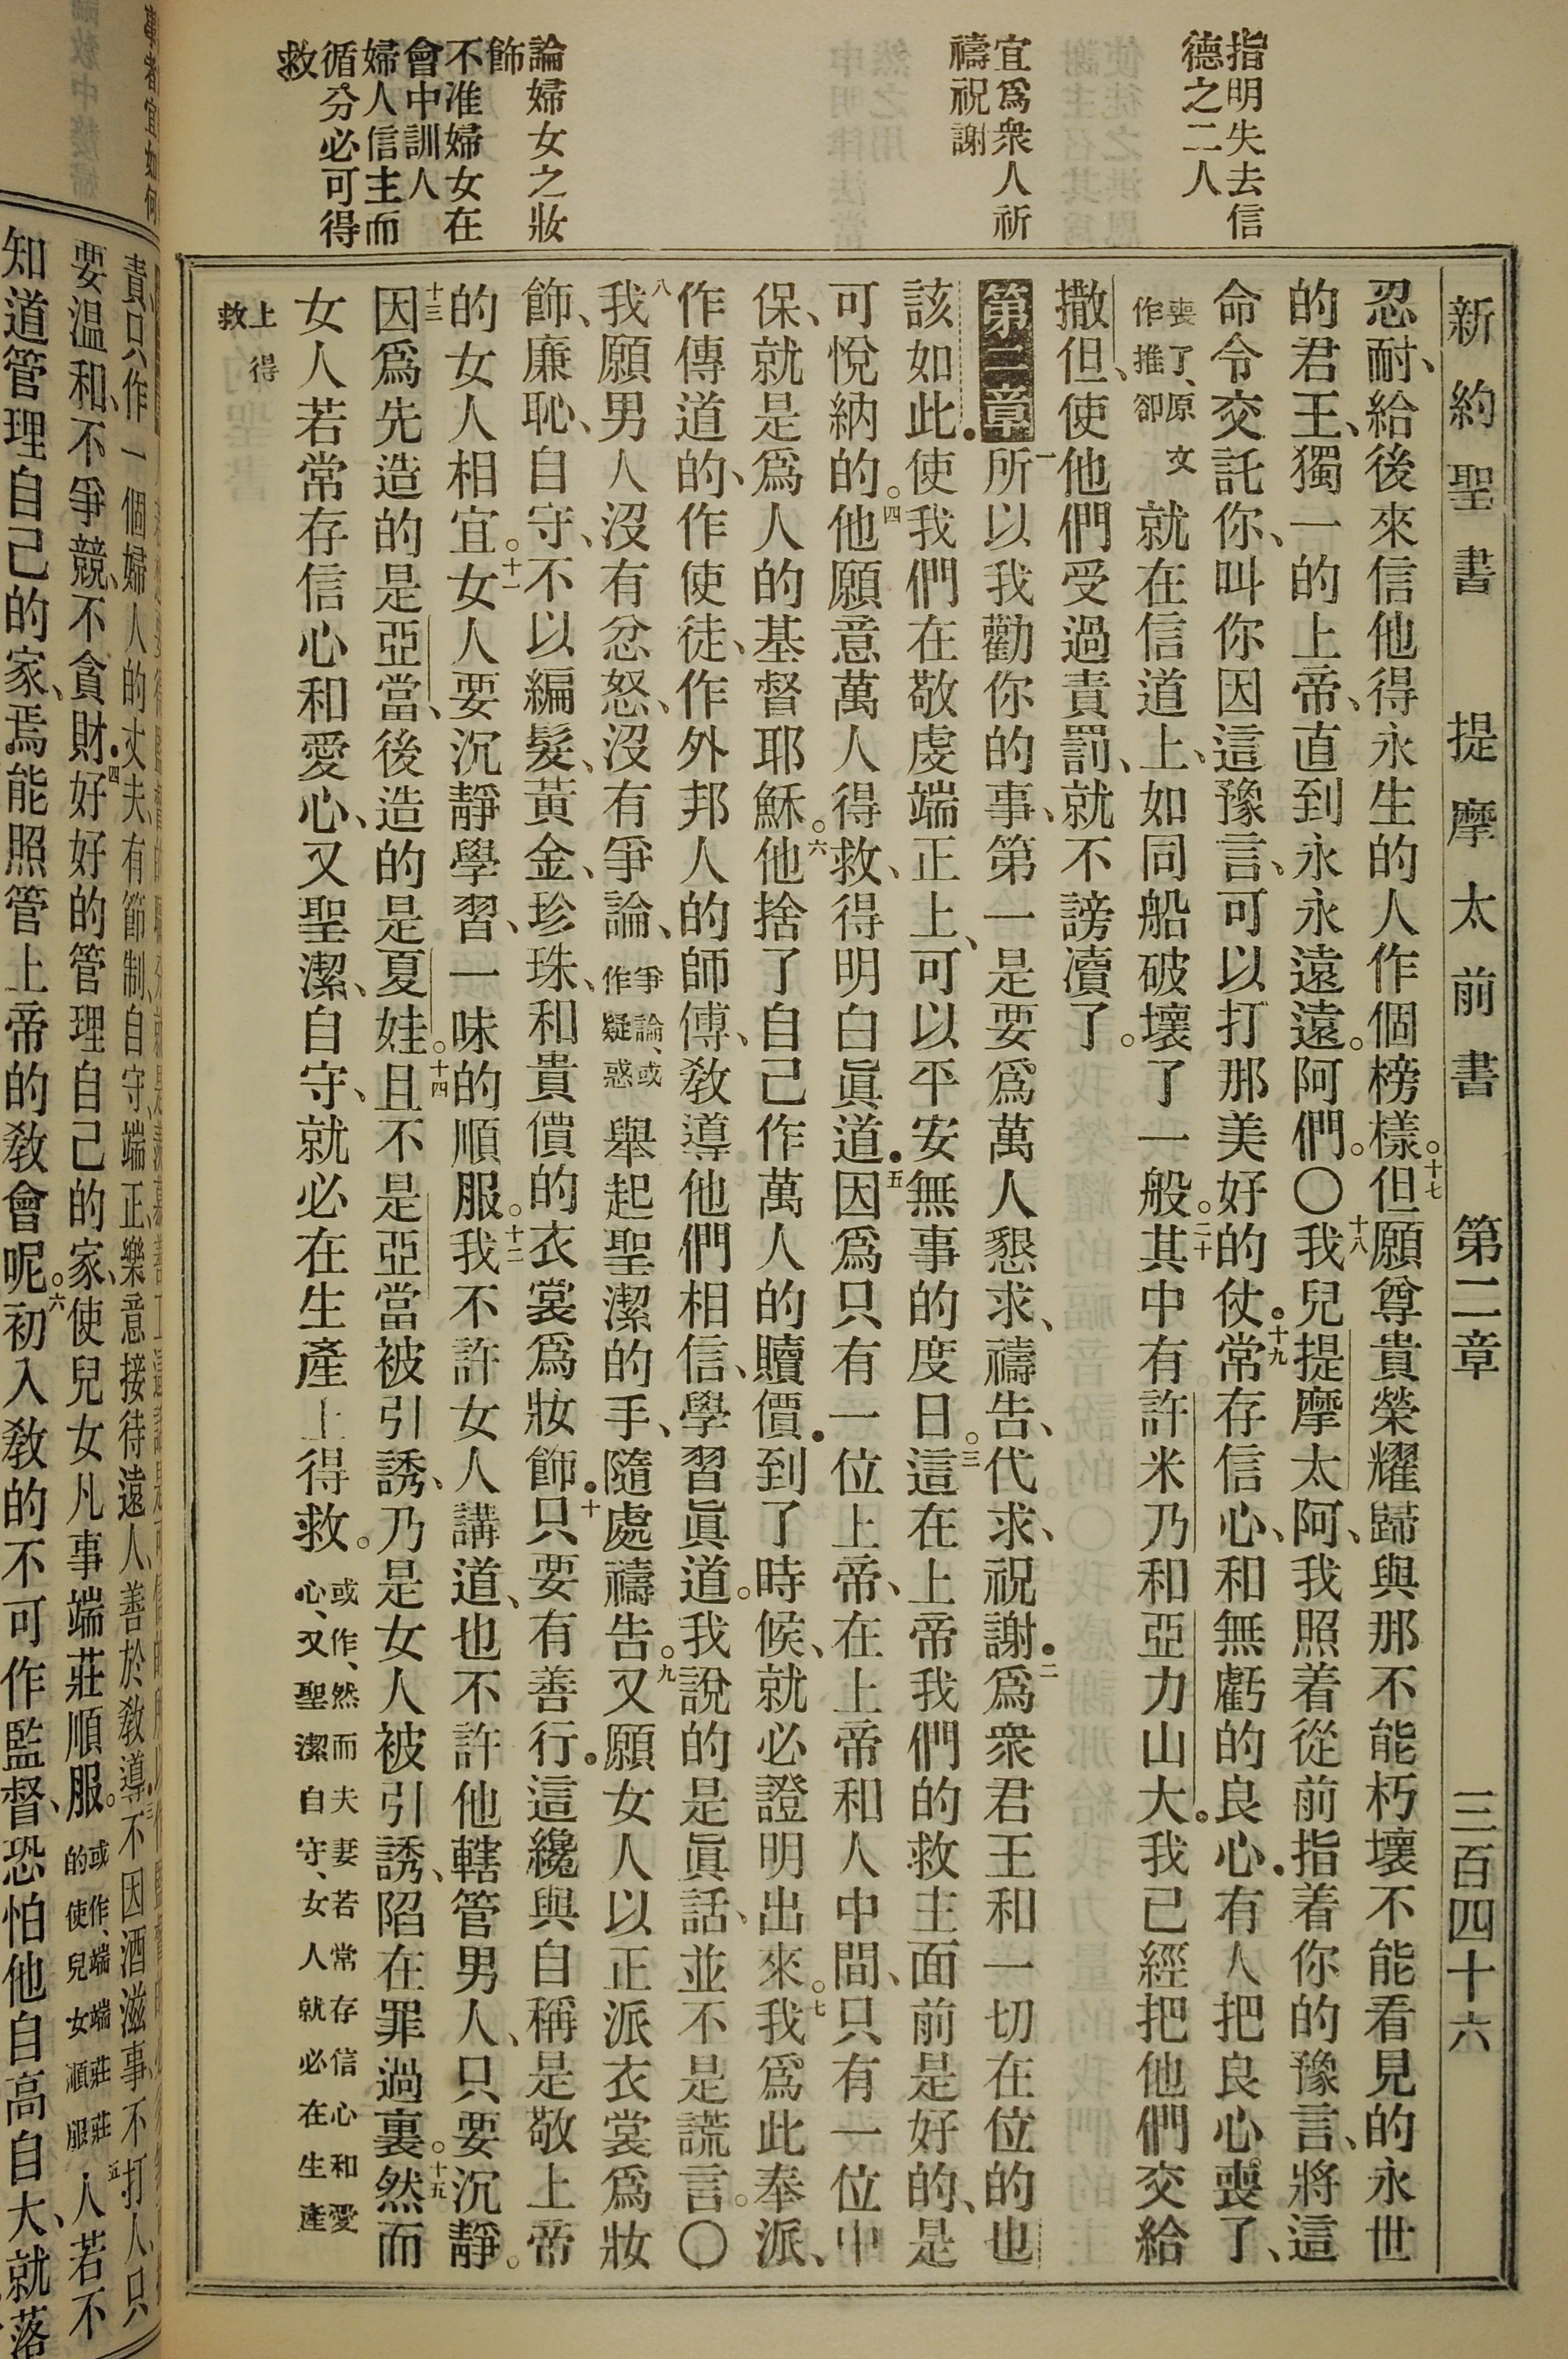 指明失去信
德之二人
宜爲衆人祈
禱祝謝
論婦女之妝
飾
不准婦女在
會中訓人
婦人信主而
循分必可得
救
新約聖書 提摩太前書 第二章 三百四十六
忍耐、給後來信他得永生的人作個榜樣。十七但願尊貴榮耀歸與那不能朽壞不能看見的永世
的君王、獨一的上帝、直到永永遠遠。阿們。〇十八我兒提摩太阿、我照着從前指着你的豫言、將這
命令交託你、叫你因這豫言、可以打那美好的仗。十九常存信心、和無虧的良心.有人把良心喪了、
喪了、原文作推卻 就在信道上、如同船破壞了一般。二十其中有許米乃和亞力山大.我已經把他們交給
撒但、使他們受過責罰、就不謗瀆了。
第二章 一所以我勸你的事、第一是要爲萬人懇求、禱告、代求、祝謝.二爲衆君王和一切在位的也
該如此.使我們在敬虔端正上、可以平安無事的度日。三這在上帝我們的救主面前是好的、是
可悅納的。四他願意萬人得救、得明白眞道.五因爲只有一位上帝、在上帝和人中間、只有一位中
保、就是爲人的基督耶穌。六他捨了自己作萬人的贖價.到了時候、就必證明出來。七我爲此奉派、
作傳道的、作使徒、作外邦人的師傅、敎導他們相信、學習眞道。我說的是眞話、並不是謊言。〇
八我願男人沒有忿怒、沒有爭論、爭論、或作疑惑 舉起聖潔的手、隨處禱告。九又願女人以正派衣裳爲妝
飾、廉恥、自守、不以編髮、黃金、珍珠、和貴價的衣裳爲妝飾.十只要有善行.這纔與自稱是敬上帝
的女人相宜。十一女人要沉靜學習、一味的順服。十二我不許女人講道、也不許他轄管男人、只要沉靜。
十三因爲先造的是亞當、後造的是夏娃。十四且不是亞當被引誘、乃是女人被引誘、陷在罪過裏。十五然而
女人若常存信心和愛心、又聖潔、自守、就必在生產上得救。或作、然而夫妻若常存信心和愛心、又聖潔自守、女人就必在生產
上得救
責、只作一個婦人的丈夫、有節制、自守、端正、樂意接待遠人、善於敎導.不因酒滋事、不打人、只
要溫和、不爭競、不貪財.四好好的管理自己的家、使兒女凡事端莊順服。或作、端端莊莊的使兒女順服 五人若不
知道管理自己的家、焉能照管上帝的敎會呢。六初入敎的不可作監督、恐怕他自高自大、就落